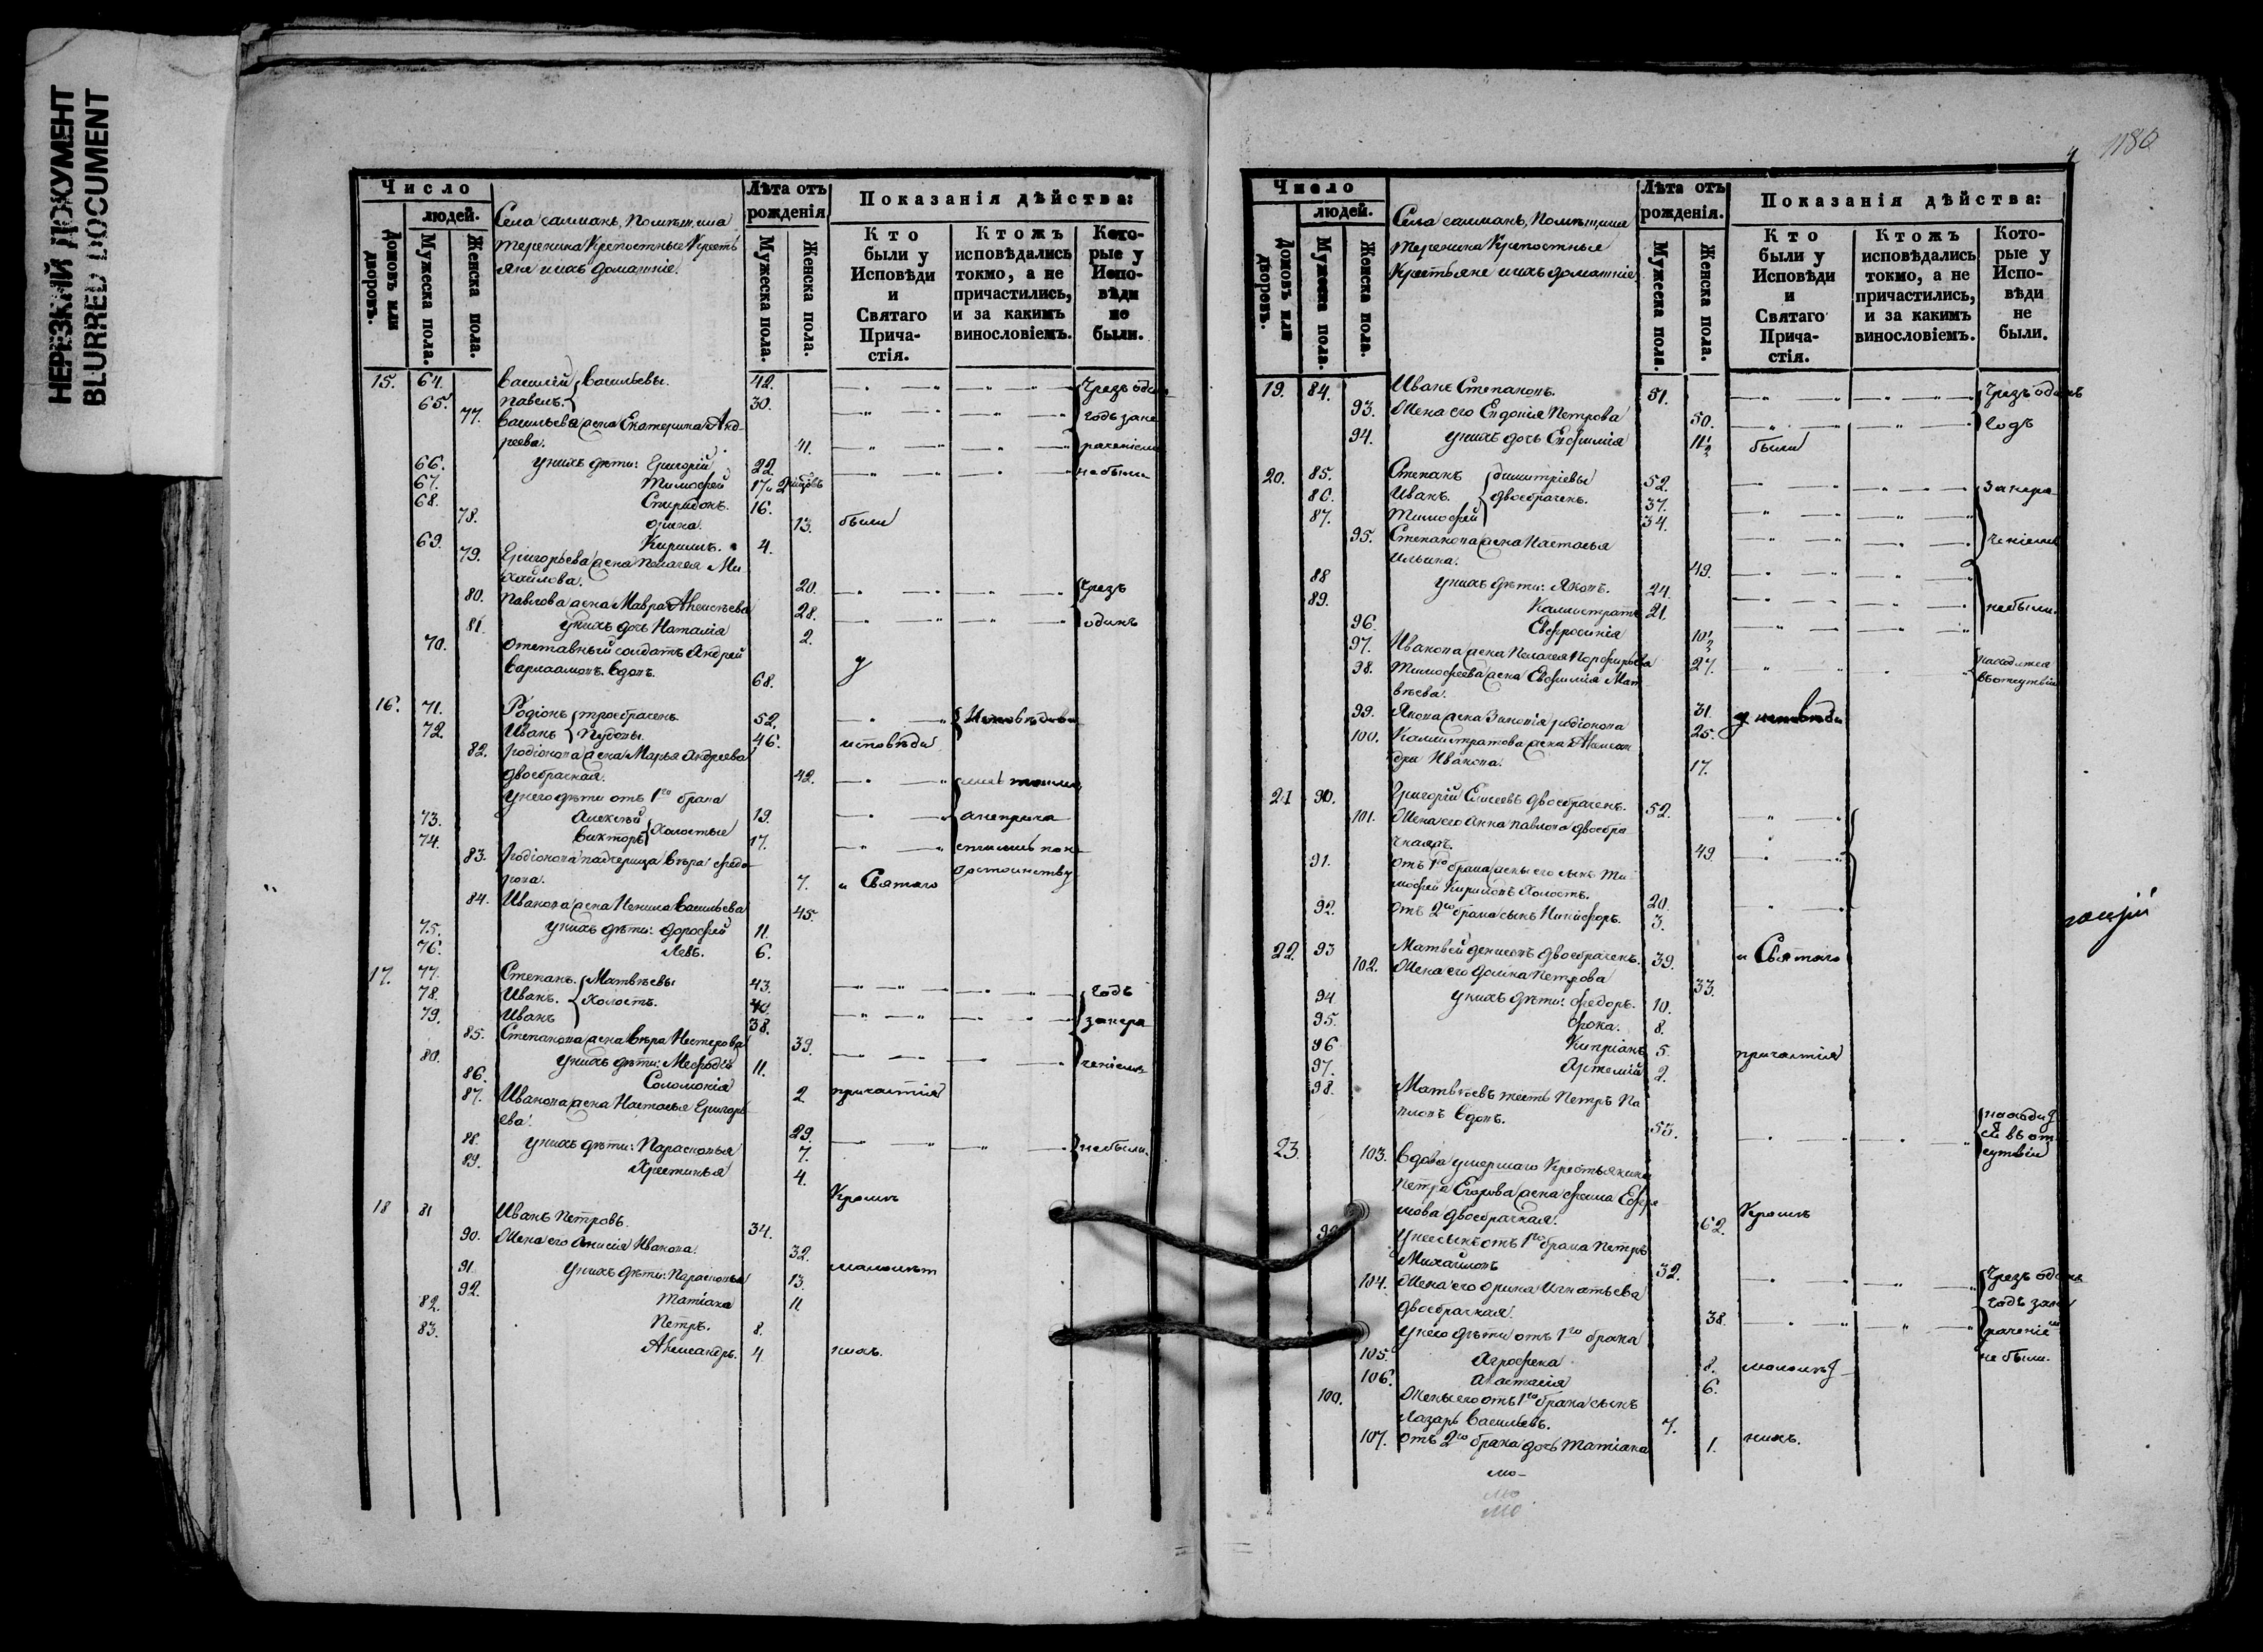 НЕРЕЗКИЙ ДОКУМЕНТ
BLURRED DOCUMENT
Число
людей.
Домовъ или дворовъ.
Мужеска пола.
Женска пола.
Села помѣщика
крѣпостные Кресть
яне ихъ домашніе.
Лѣта отъ рожденія
Мужеска пола.
Женска пола.
Показанія дѣйства:
Кто были у Исповѣди и Святаго Причастія.
Ктожъ исповѣдались токмо, а не причастились, и за какимъ винословіемъ.
Которые у Исповѣди не были.
15. 64. Василій Васильевы. 42. Чрезъ оди
65. Павелъ. 30. годъ зане
77. Васильева жена Екатерина Анд-
реева. 41. раченіем
66. У нихъ дѣти: Григорій 22. не были
67. Тимофей 17.
68. Спиридонъ. 16.
78. Орина. 13. были
69. Кирилъ. 4.
79. Григорьева жена Пелагея Ми-
хайлова. 20. Чрезъ
80. Павлова жена Мавра Алексѣева 28. одинъ
81. У нихъ дочь Наталія 2.
70. Отставный солдатъ Андрей
Варлаамовъ вдовъ. 68. у
16. 71. Родіонъ троебраченъ 52.
72. Иванъ 46. исповѣди
82. Родіонова жена Марья Андреева
двоебрачная. 42.
У него дѣти отъ 1го брака
73. Алексѣй 19. а не прича
74. Викторъ холостые 17.
83. Родіонова падчерица Вѣра Федо-
рова. 7. и Святаго достоинству
84. Иванова жена Ненила Васильева 45.
75. У нихъ дѣти: Дорофей 11.
76. Левъ. 6.
17. 77. Степанъ. Матвѣевы 43. Годъ
78. Иванъ. холостъ. 40.
79. Иванъ 38. занера
85. Степанова жена Вѣра Нестерова 39.
80. У нихъ дѣти: Мефодій 11. ченіемъ
86. Соломонія 2. причастія
87. Иванова жена Настасья Григорь
ева. 29.
88. У нихъ дѣти: Парасковья 7. не были.
89. Христинья 4.
Кромѣ
18 81 Иванъ Петровъ. 34.
90. Жена его Анисія Иванова. 32.
91. У нихъ дѣти: Парасковья 13. малолѣт
92. Татіана 11
82. Петръ. 8.
83. Александръ. 4. нихъ.
1180
Число
людей.
Домовъ или дворовъ.
Мужеска пола.
Женска пола.
Села помѣщика
крѣпостные
Крестьяне ихъ домашніе
Лѣта отъ рожденія.
Мужеска пола.
Женска пола.
Показанія дѣйства:
Кто были у Исповѣди и Святаго Причастія.
Ктожъ исповѣдались токмо, а не причастились, и за какимъ винословіемъ.
Которые у Исповѣди не были.
19. 84. Иванъ Степановъ. 51. Чрезъ одинъ
93. Жена его Евдокія Петрова 50. годъ
94. У нихъ дочь Евфимія были
20. 85. Степанъ Димитріевы 52. занера
86. Иванъ двоебраченъ. 37.
87. Тимофей 34.
95. Степанова жена Настасья ченіемъ
Ильина. 49.
88 У нихъ дѣти: Яковъ. 24.
89. Каллистратъ 21. не были.
96. Евфросинія
97. Иванова жена Пелагея Порфирьева 27. находится
98. Тимофеева жена Евфимія Мат-
вѣева. 31. въ отсутствіи
99. Якова жена Зиновія Родіонова 25. у исповѣди
100. Каллистратова жена Алексан
дра Иванова. 17.
21 90. Григорій Елисеевъ двоебраченъ. 52.
101. Жена его Анна Павлова двоебра
чная. 49.
91. отъ 1го брака жены его сынъ Ти-
мофей Кириловъ холостъ. 20.
92. отъ 2го брака сынъ Никифоръ. 3.
22. 93 Матвей Денисовъ двоебраченъ. 39. и Святаго
102. Жена его Домна Петрова 33.
94. У нихъ дѣти: Федоръ. 10.
95. Фока. 8.
96 Кипріанъ 5. причастія
97. Артемій 2.
98. Матвѣевъ тесть Петръ Па
вловъ вдовъ. 55.
23. 103. Вдова умершаго Крестьянина
Петра Егорова жена Ефре
мова двоебрачная. 62. Кромѣ
99 У нее сынъ отъ 1го брака Петръ
Михайловъ 32.
104. Жена его Орина Игнатьева Чрезъ одинъ
двоебрачная. 38. годъ зане
У него дѣти отъ 1го брака раченіемъ
105. Агрофена 8. малолѣт не были.
106. Анастасія 6.
100. Жены его отъ 1го брака сынъ
Лазарь Васильевъ. 7.
107. отъ 2го брака дочь Татіана 1. нихъ.
мо-
мо
мо